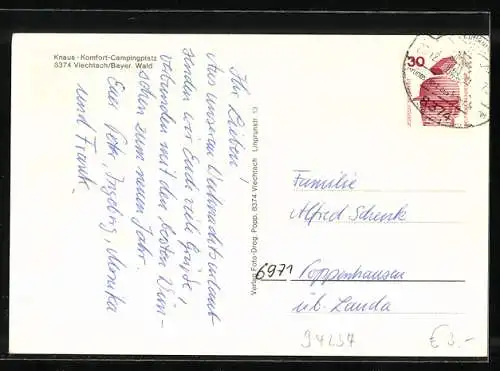 Knaus-Komfort-Campingplatz
8374 Viechtach/Bayer. Wald
Ihr Lieben!
Aus unserem Weihnachtsurlaub
senden wir Euch viele Grüße,
verbunden mit den besten Wün-
schen zum neuen Jahr.
Eure Ingeborg, Monika
und Frank.
Verlag Foto-Drog. Popp, 8374 Viechtach Linprunstr. 13
30
8374
Familie
Alfred Schenk
6971 Poppenhausen
üb. Lauda
94237
€ 3.-